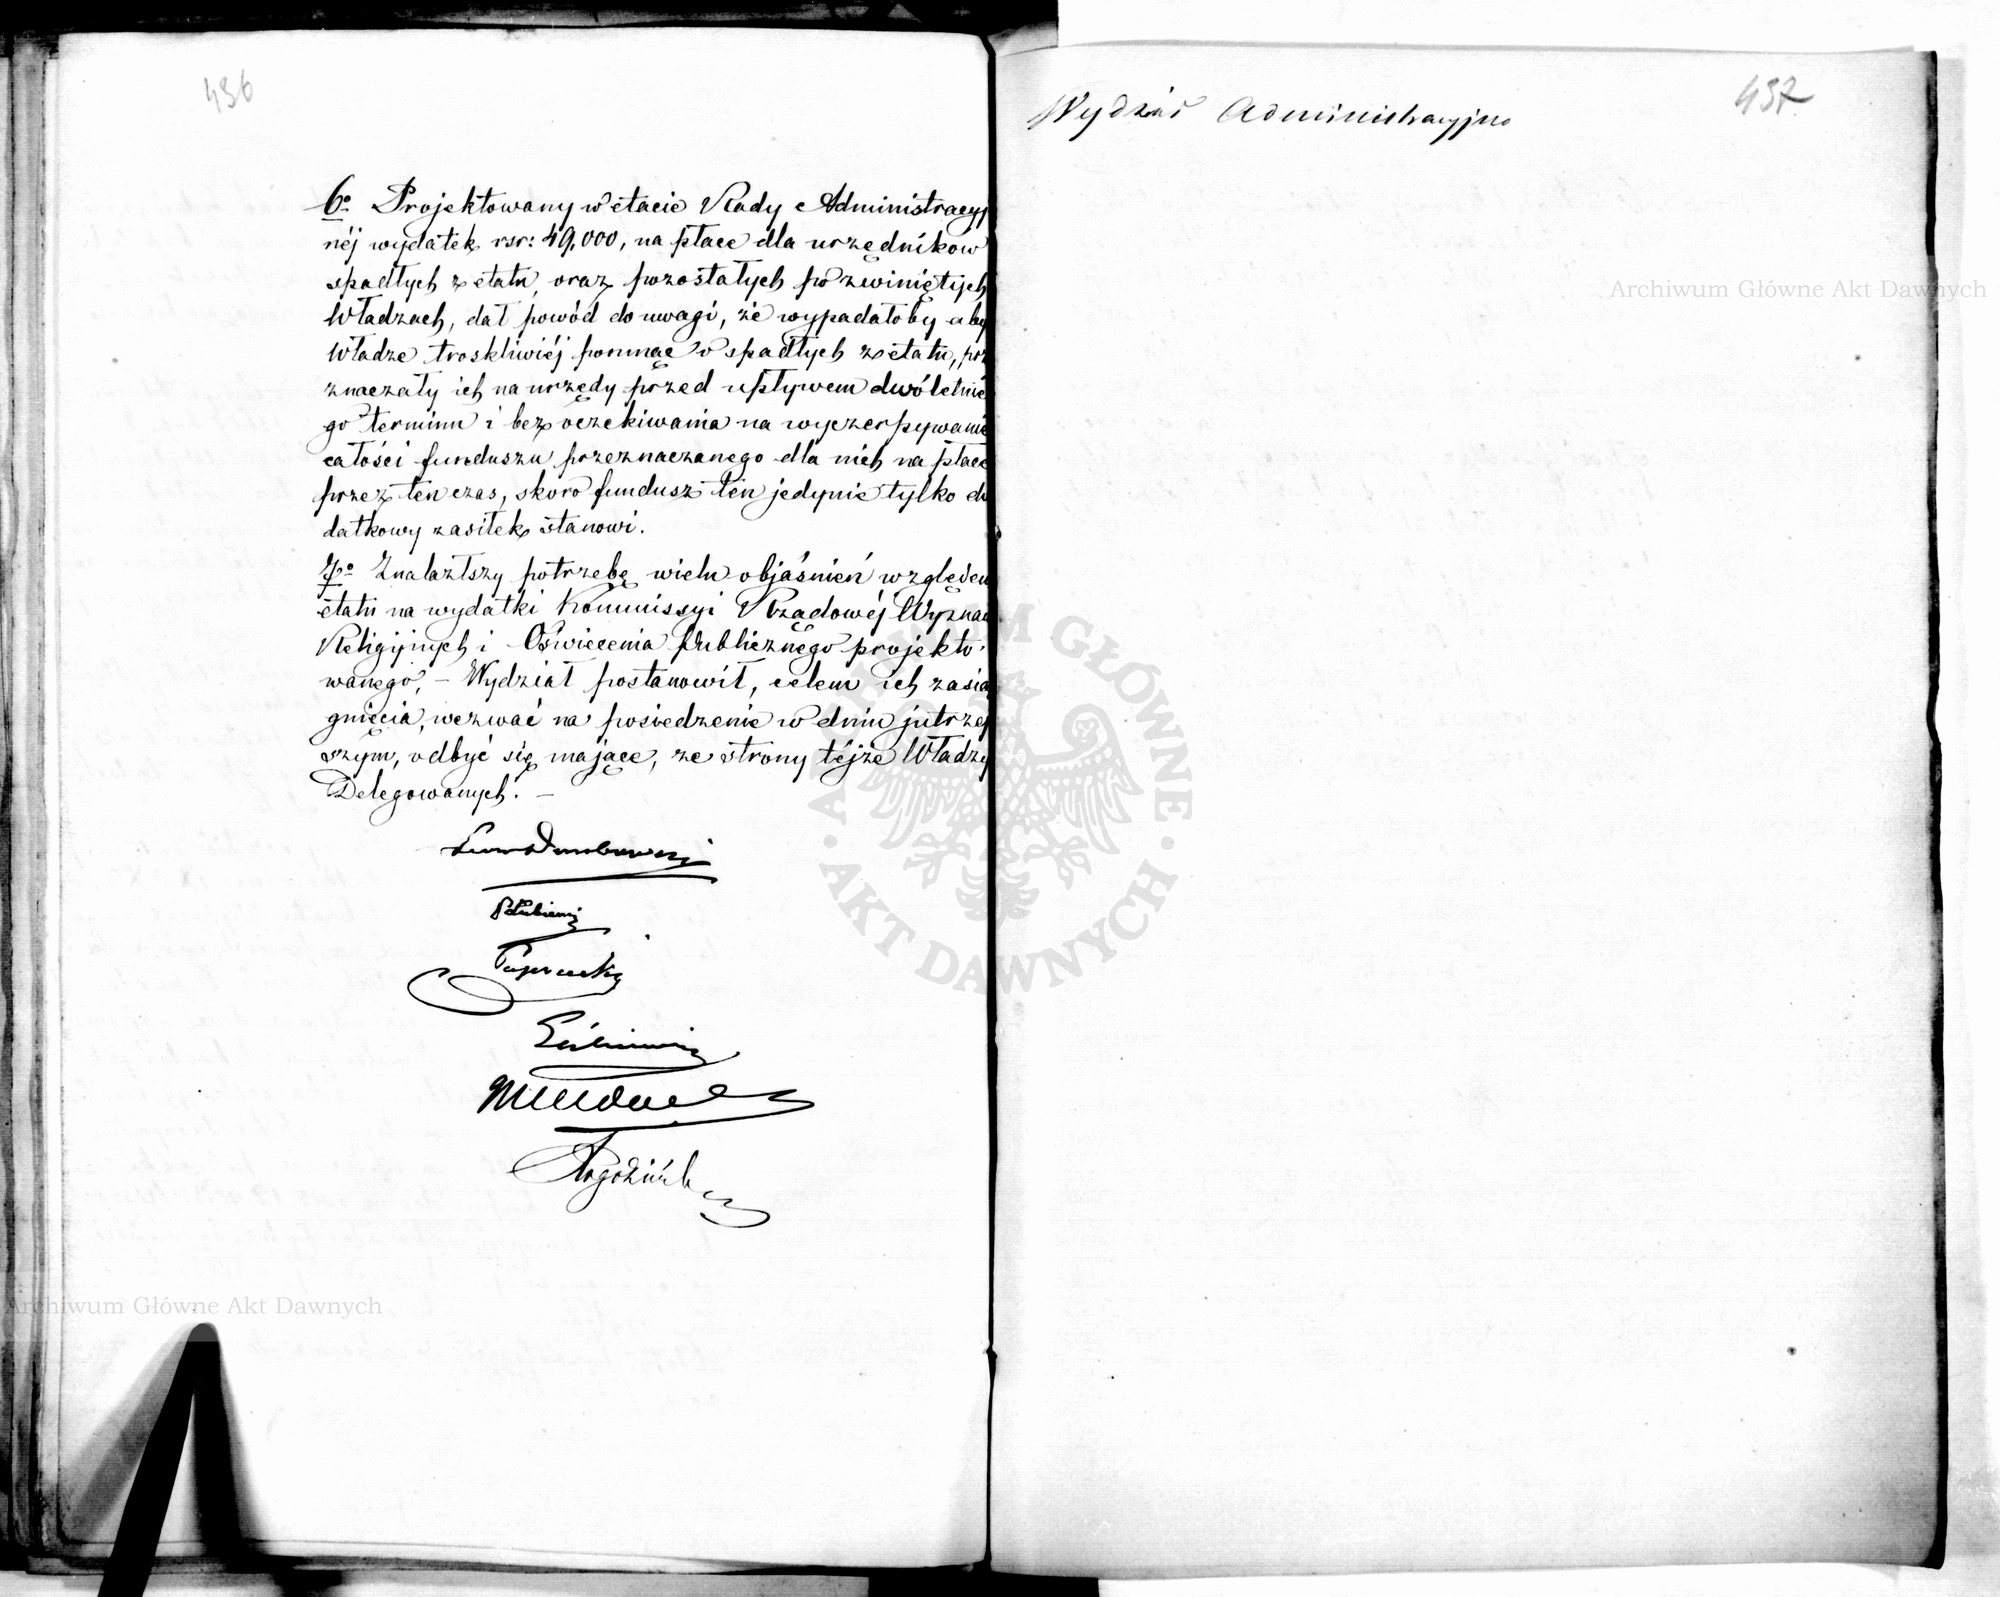 436
6º Projektowany w etacie Rady Administracyj
nej wydatek rsr: 49,000, na płace dla urzędników
spadłych z etatu, oraz pozostałych po zwiniętych
Władzach, dał powód do uwagi, że wypadałoby aby
Władze troskliwiéj pomnąc o spadłych z etatu, prze
znaczały ich na urzędy przed upływem dwóletnie
go terminu i bez oczekiwania na wyczerpywanie
całości funduszu przeznaczanego dla nich na płace
przez ten czas, skoro fundusz ten jedynie tylko do
datkowy zasiłek stanowi.
7º Znalazłszy potrzebę wielu objaśnień względem
etatu na wydatki Kommissyi Rządowéj Wyznań
Religijnych i Oświecenia Publicznego projekto-
wanego, – Wydział postanowił, celem ich zasią
gnięcia, wezwać na posiedzenie w dniu jutrzej
szym, odbyć się mające, ze strony téjże Władzy
Delegowanych. –
437
Wydział Administracyjno
Archiwum Główne Akt Dawnych
ARCHIWUM GŁÓWNE AKT DAWNYCH
Archiwum Główne Akt Dawnych